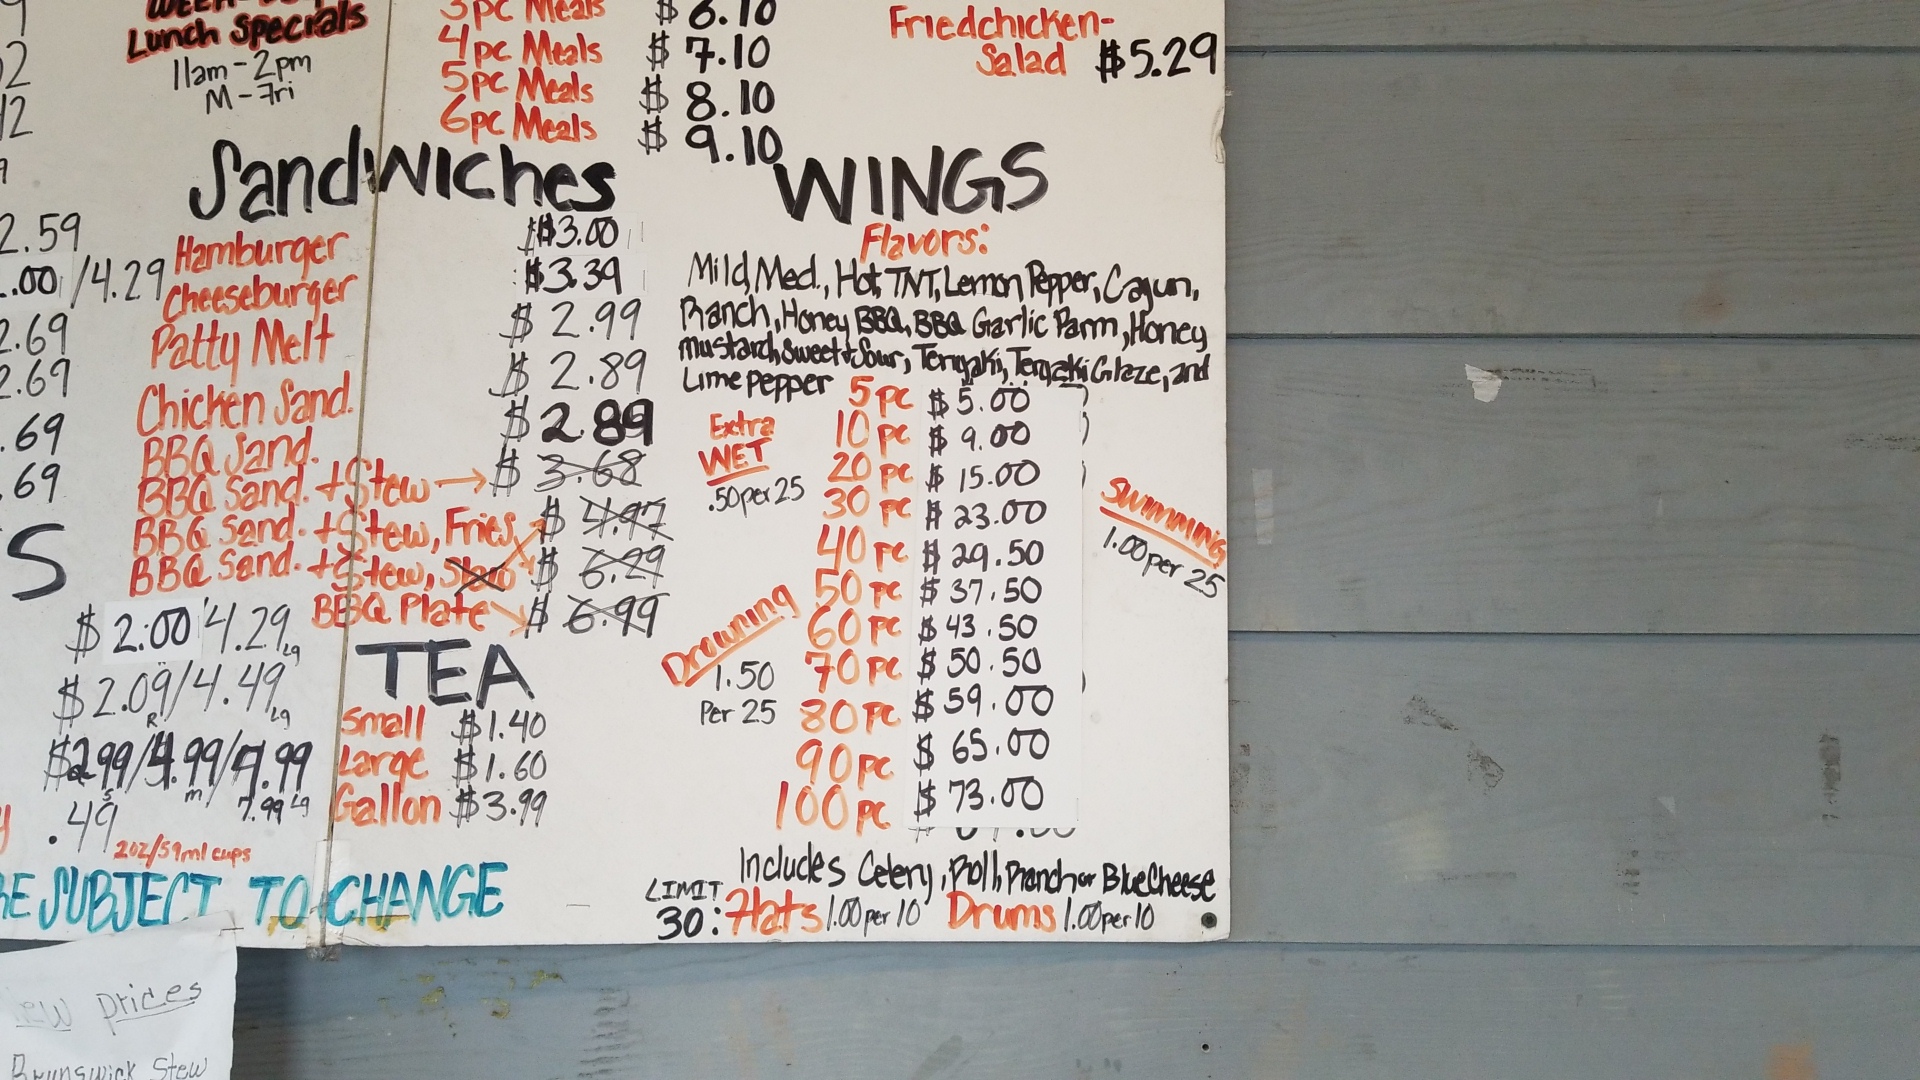 Lunch Specials
11am-2pm
M-Fri
3pc Meals $ 6.10
4pc Meals $ 7.10
5pc Meals $ 8.10
6pc Meals $ 9.10
Friedchicken-
Salad $5.29
Sandwiches
$3.00
Hamburger $3.39
Cheeseburger $ 2.99
Patty Melt $ 2.89
Chicken Sand. $ 2.89
BBQ Sand. $ 3.68
BBQ Sand. + Stew $ 4.97
BBQ Sand. + Stew, Fries $ 6.29
BBQ Sand. + Stew, Slaw $ 6.99
BBQ Plate
2.59
.00/4.29
2.69
2.69
.69
.69
S
$ 2.00/4.29 Lg
$ 2.09/4.49
R Lg
$2.99/4.99/7.99
S m 7.99 Lg
.49
2oz/59ml cups
TEA
Small $1.40
Large $1.60
Gallon $3.99
WINGS
Flavors:
Mild, Med., Hot, TNT, Lemon Pepper, Cajun,
Ranch, Honey BBQ, BBQ Garlic Parm, Honey
mustard, Sweet+Sour, Teriyaki, Teriyaki Glaze, and
Lime pepper
5 pc $ 5.00
10 pc $ 9.00
20 pc $ 15.00
30 pc $ 23.00
40 pc $ 29.50
50 pc $ 37.50
60 pc $ 43.50
70 pc $ 50.50
80 pc $ 59.00
90 pc $ 65.00
100 pc $ 73.00
Extra
WET
.50 per 25
Drowning
1.50
Per 25
Swimming
1.00 per 25
Includes Celery, Roll, Ranch or BlueCheese
LIMIT
30: Flats 1.00 per 10 Drums 1.00 per 10
SUBJECT TO CHANGE
prices
Brunswick Stew